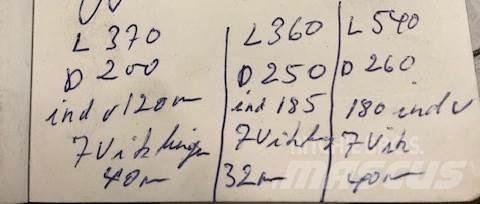 L 370
D 200
ind v 120 m
7 Viklinger
40 m
L 360
D 250
ind 185
7 Vikl
32 m
L 540
D 260
180 ind v
7 Vik
40 m
MASCUS